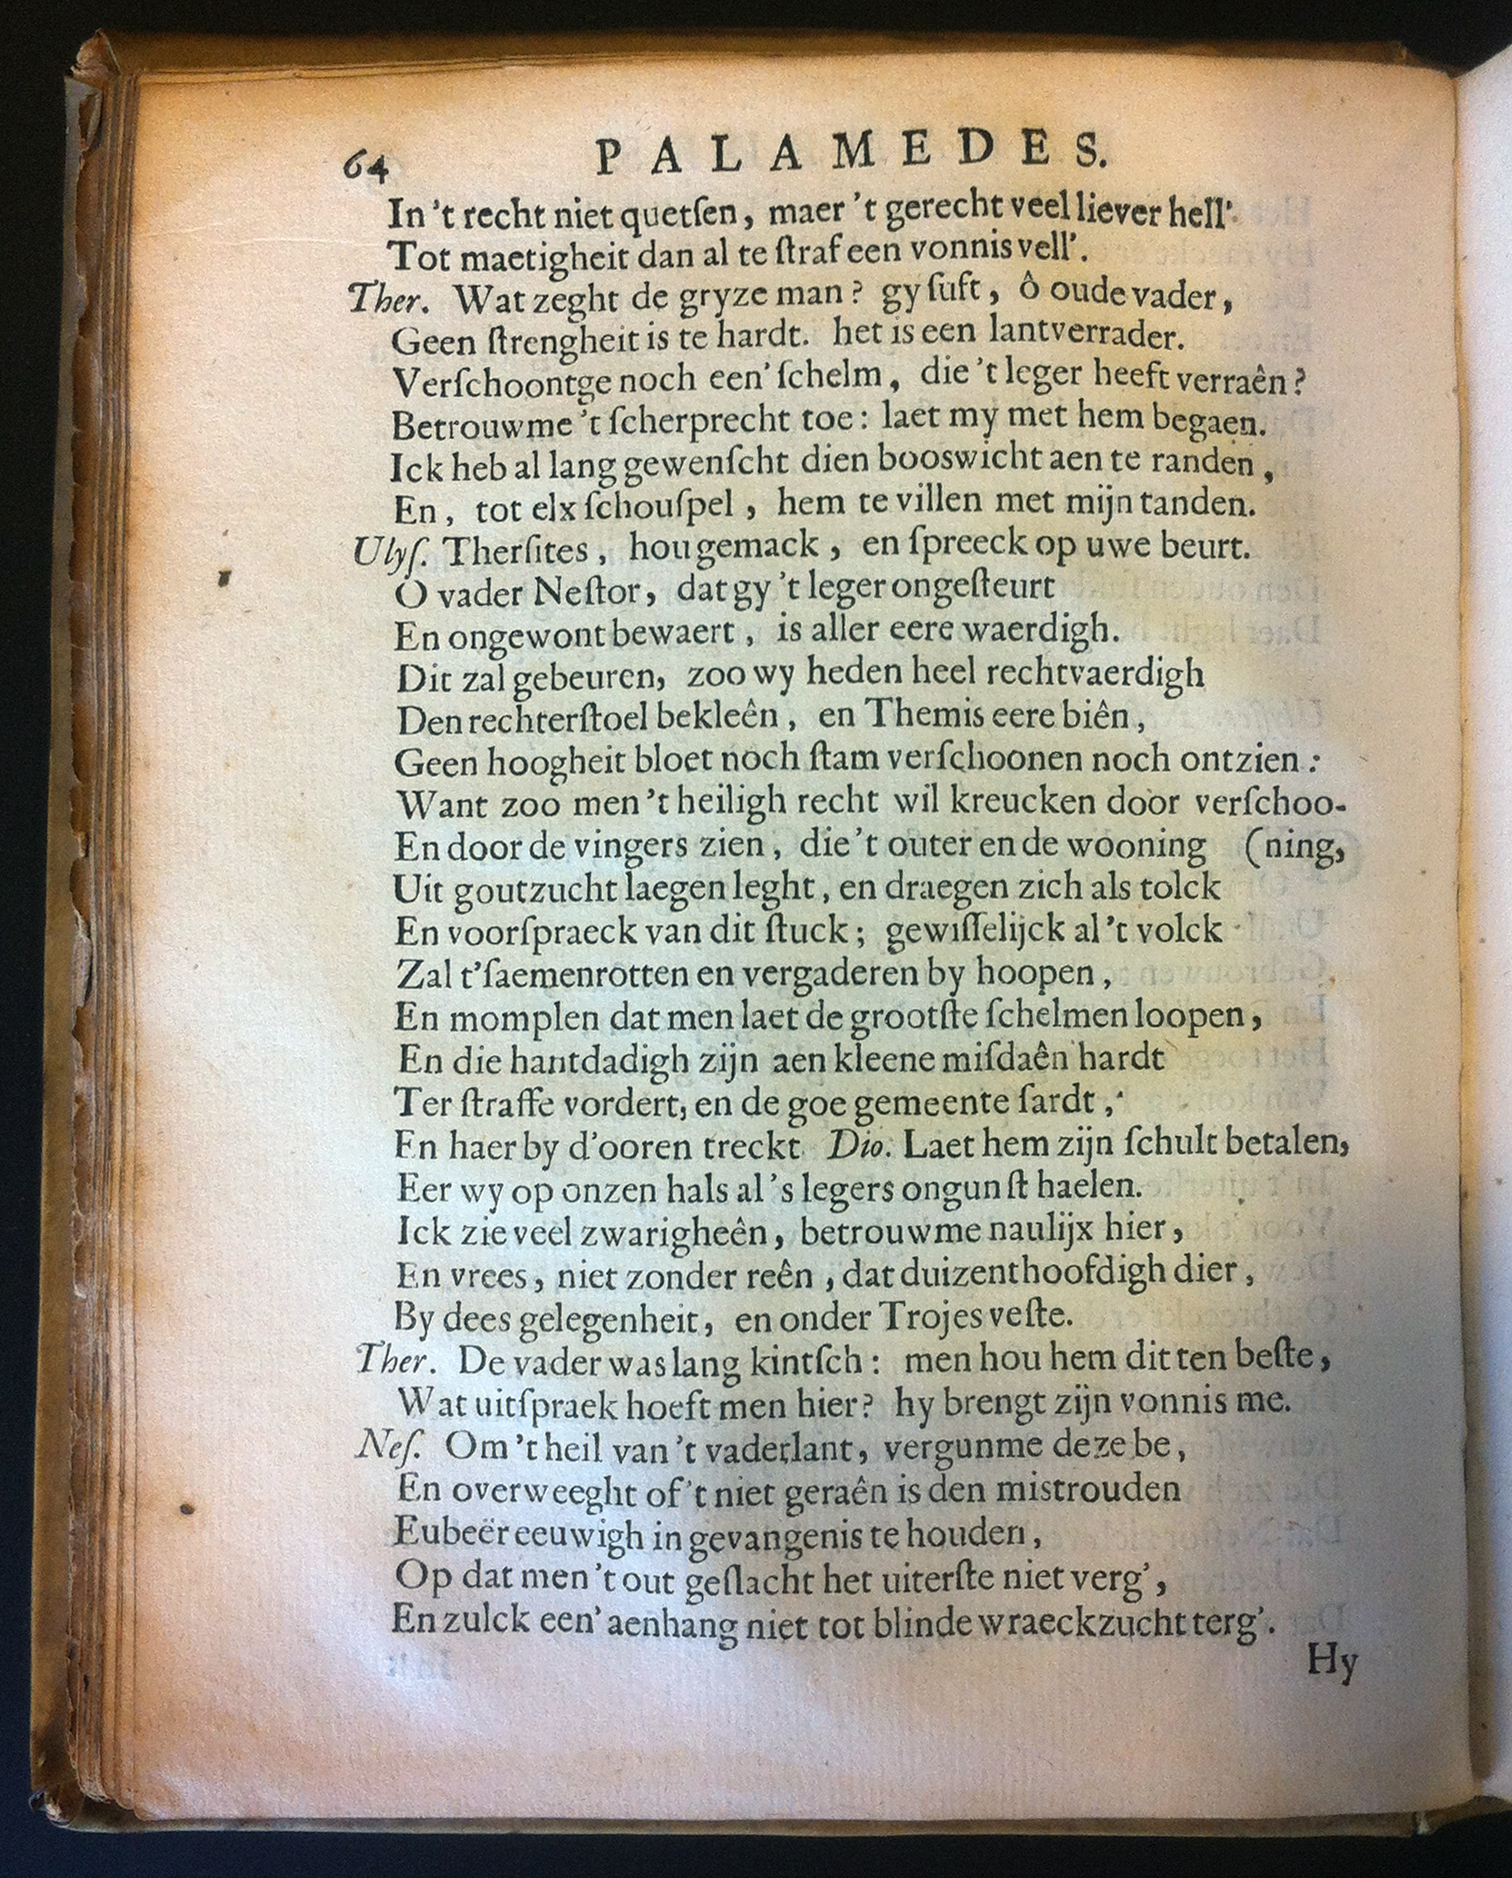 64 PALAMEDES.
In 't recht niet quetſen, maer 't gerecht veel liever hell'
Tot maetigheit dan al te ſtraf een vonnis vell'.
Ther. Wat zeght de gryze man? gy ſuft, ô oude vader,
Geen ſtrengheit is te hardt. het is een lantverrader.
Verſchoontge noch een' ſchelm, die 't leger heeft verraên?
Betrouwme 't ſcherprecht toe: laet my met hem begaen.
Ick heb al lang gewenſcht dien booswicht aen te randen,
En, tot elx ſchouſpel, hem te villen met mijn tanden.
Ulyſ. Therſites, hou gemack, en ſpreeck op uwe beurt.
O vader Neſtor, dat gy 't leger ongeſteurt
En ongewont bewaert, is aller eere waerdigh.
Dit zal gebeuren, zoo wy heden heel rechtvaerdigh
Den rechterſtoel bekleên, en Themis eere biên,
Geen hoogheit bloet noch ſtam verſchoonen noch ontzien:
Want zoo men 't heiligh recht wil kreucken door verſchoo-
En door de vingers zien, die 't outer en de wooning (ning,
Uit goutzucht laegen leght, en draegen zich als tolck
En voorſpraeck van dit ſtuck; gewiſſelijck al 't volck
Zal t'ſaemenrotten en vergaderen by hoopen,
En momplen dat men laet de grootſte ſchelmen loopen,
En die hantdadigh zijn aen kleene miſdaên hardt
Ter ſtraffe vordert, en de goe gemeente ſardt,
En haer by d'ooren treckt Dio. Laet hem zijn ſchult betalen,
Eer wy op onzen hals al 's legers ongunſt haelen.
Ick zie veel zwarigheên, betrouwme naulijx hier,
En vrees, niet zonder reên, dat duizenthoofdigh dier,
By dees gelegenheit, en onder Trojes veſte.
Ther. De vader was lang kintſch: men hou hem dit ten beſte,
Wat uitſpraek hoeft men hier? hy brengt zijn vonnis me.
Neſ. Om 't heil van 't vaderlant, vergunme deze be,
En overweeght of 't niet geraên is den mistrouden
Eubeër eeuwigh in gevangenis te houden,
Op dat men 't out geſlacht het uiterſte niet verg',
En zulck een' aenhang niet tot blinde wraeckzucht terg'.
Hy